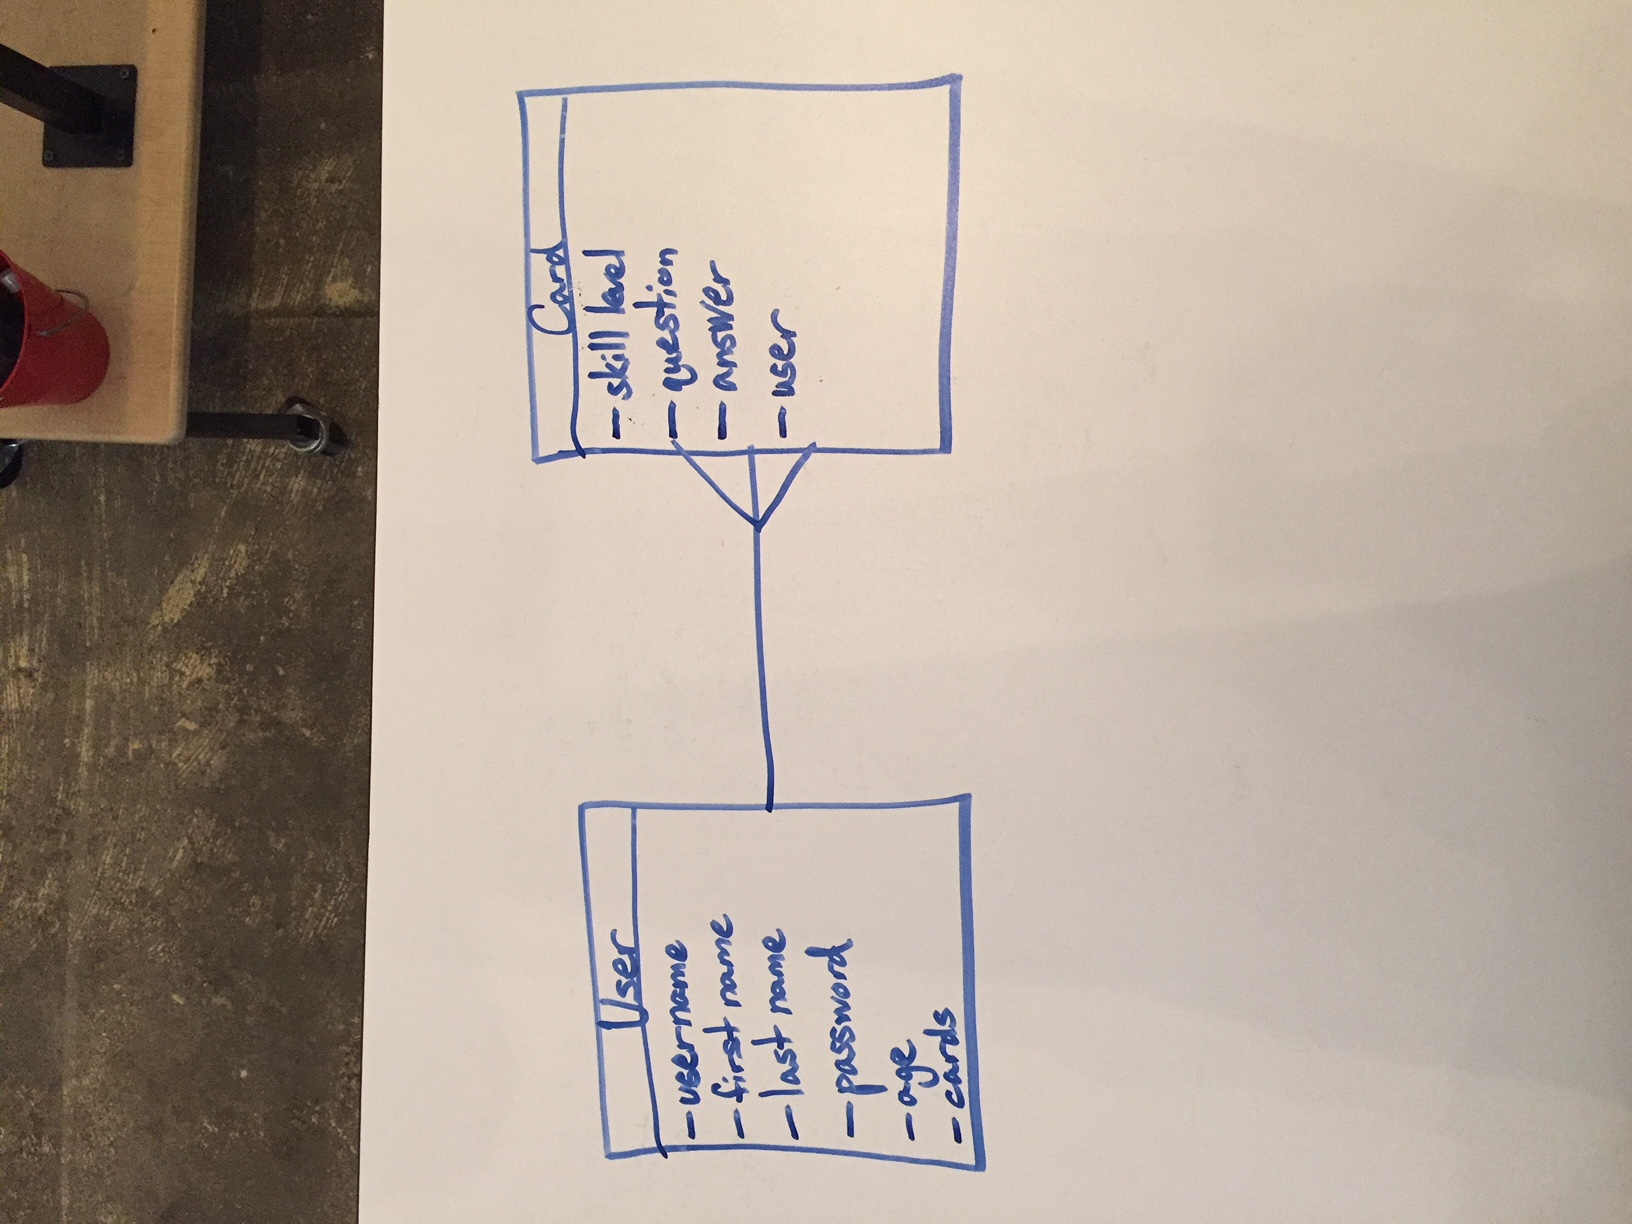 User
- username
- first name
- last name
- password
- age
- cards
Card
- skill level
- question
- answer
- user